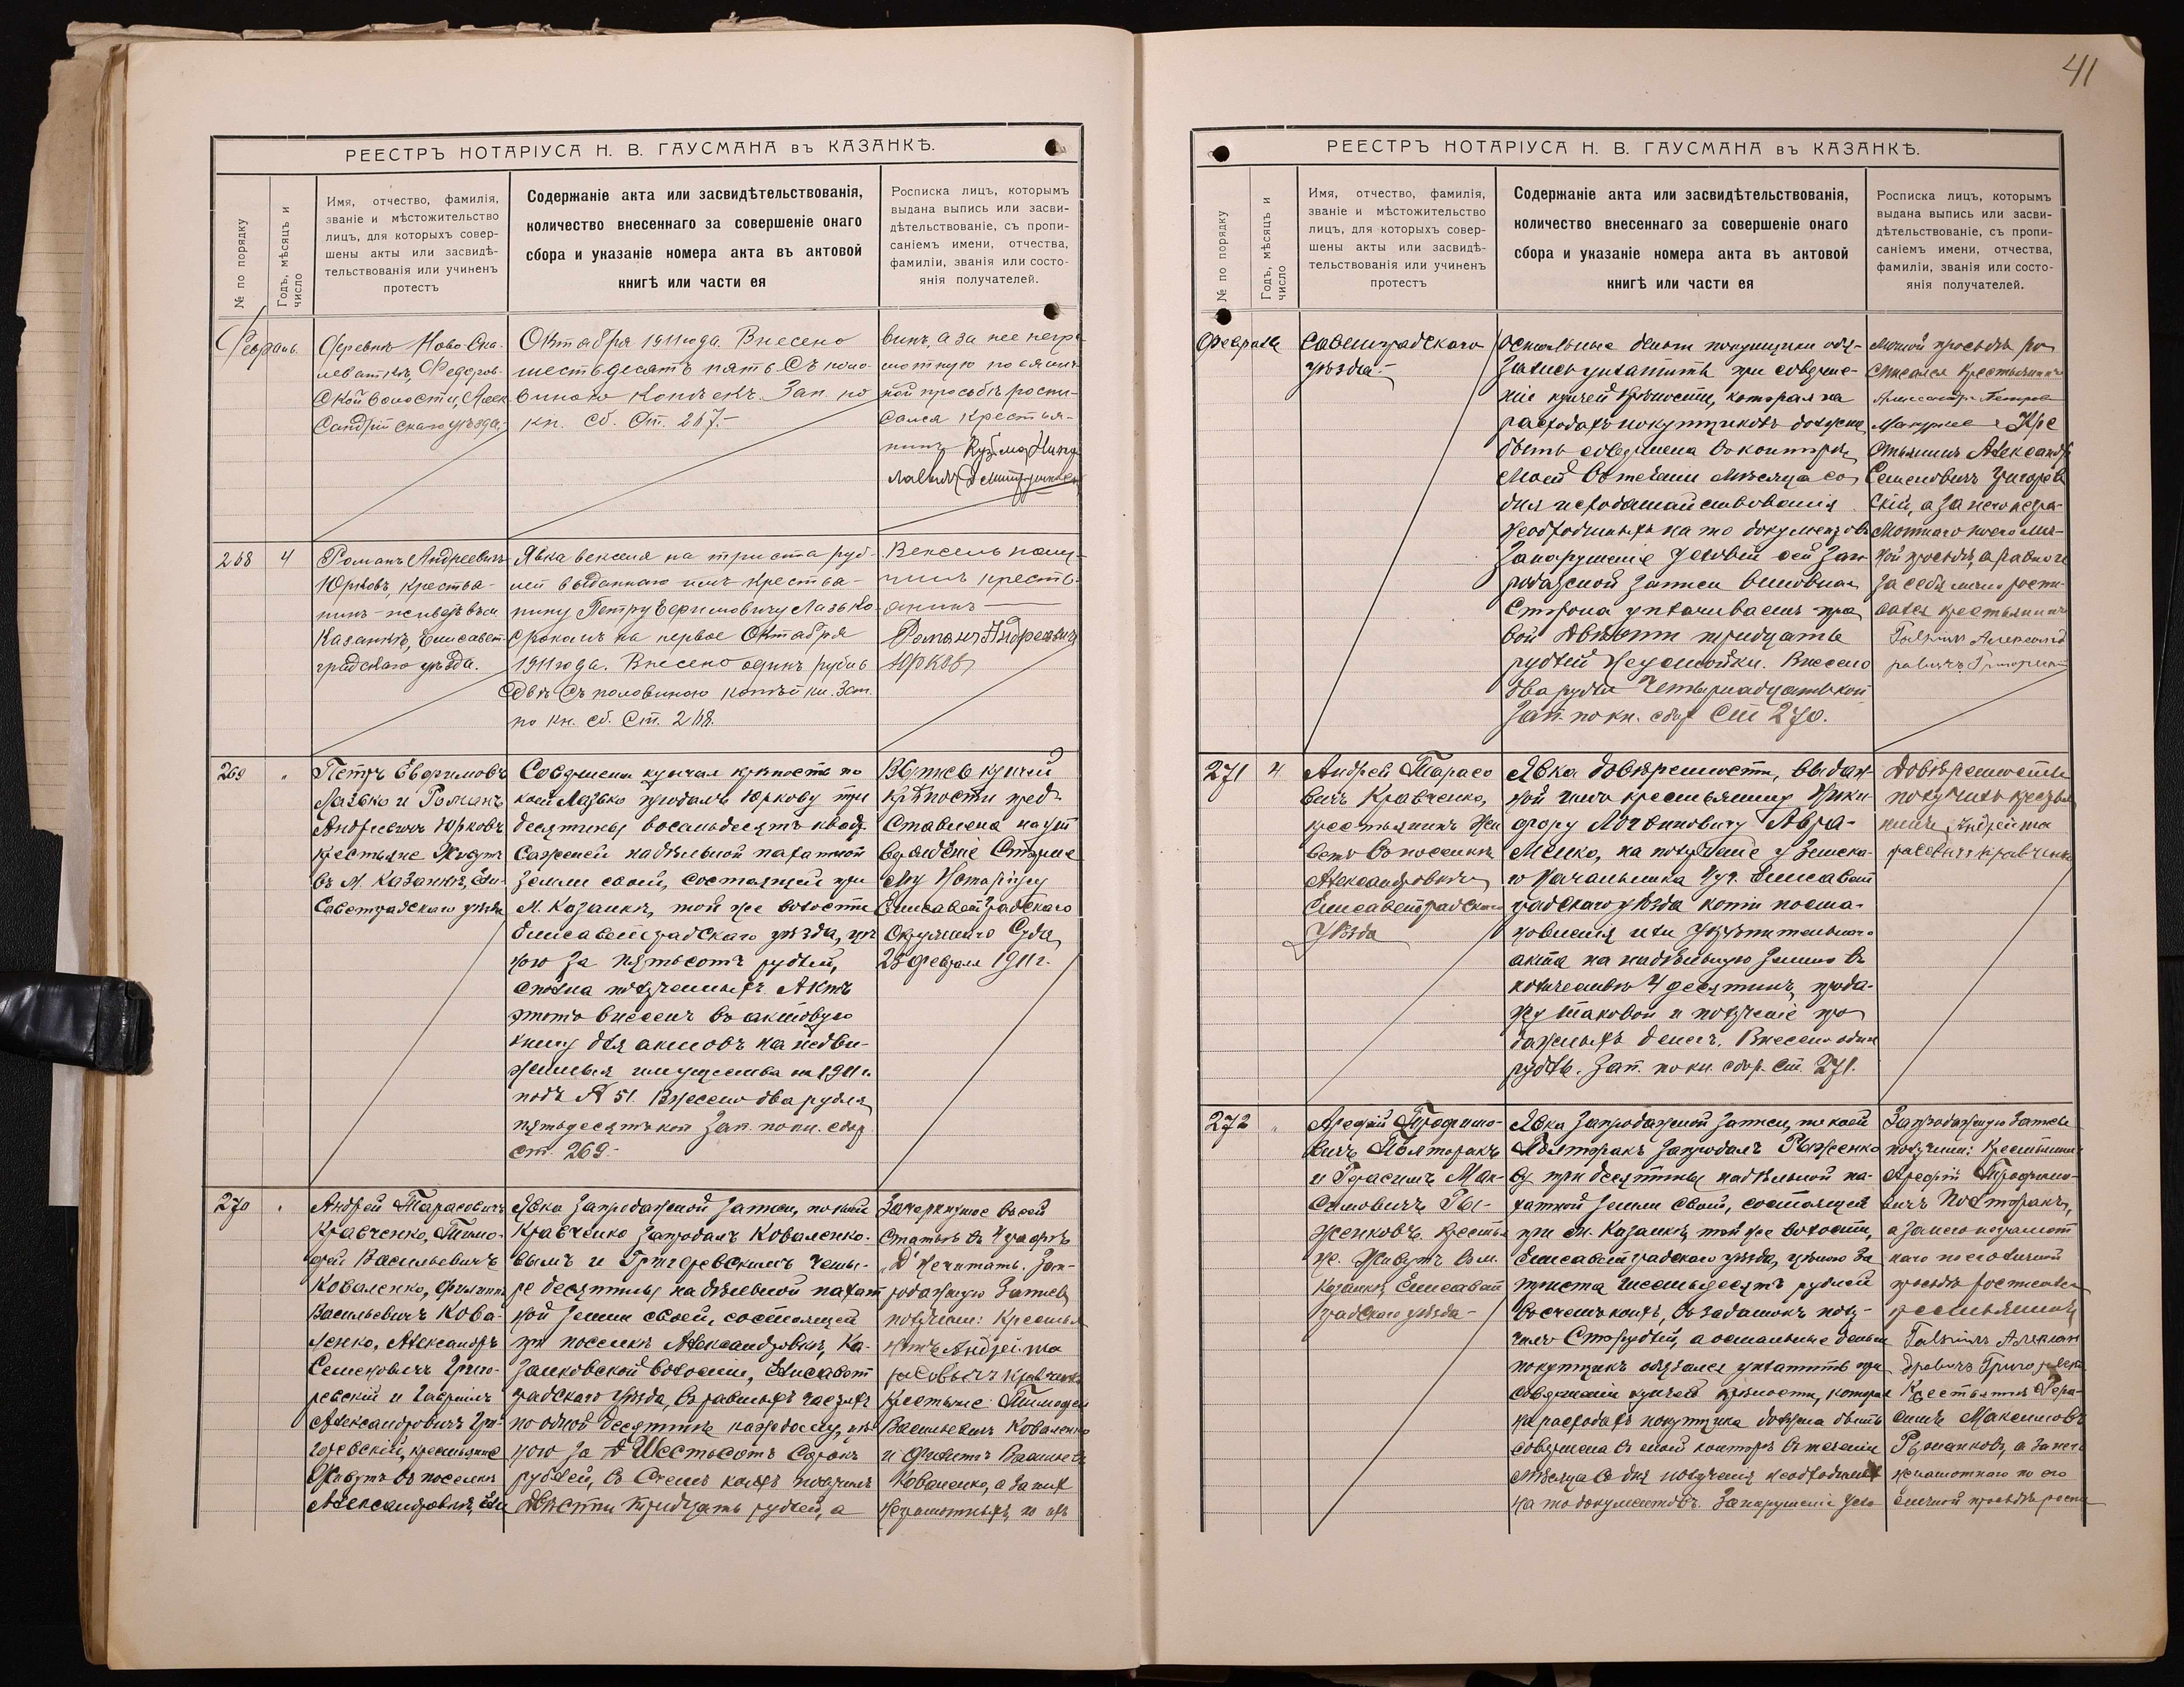 41
РЕЕСТРЪ НОТАРІУСА Н. В. ГАУСМАНА въ КАЗАНКѢ.
№ по порядку
Годъ, мѣсяцъ и
число
Имя, отчество, фамилія,
званіе и мѣстожительство
лицъ, для которыхъ совер-
шены акты или засвидѣ-
тельствованія или учиненъ
протестъ
Содержаніе акта или засвидѣтельствованія,
количество внесеннаго за совершеніе онаго
сбора и указаніе номера акта въ актовой
книгѣ или части ея
Росписка лицъ, которымъ
выдана выпись или засви-
дѣтельствованіе, съ пропи-
саніемъ имени, отчества,
фамиліи, званія или состо-
янія получателей.
Февраль.
Деревни Ново-Ска-
леваткѣ, Федоров-
ской волости, Алек
сандрійскаго уѣзда.
Октября 1911 года. Внесено
шестьдесятъ пять съ поло-
виною копѣекъ. Зап. по
кн. сб. Ст. 267.-
винъ, а за нее негра
мотную по ея лич
ной просьбѣ роспи-
сался крестья-
нинъ Кузьма
268
4
Романъ Андреевичъ
Юрковъ, крестья-
нинъ живетъ въ м.
Казанкѣ, Елисавет-
градскаго уѣзда.
Явка векселя на триста руб-
лей выданнаго имъ крестья-
нину Петру Ефримовичу Лазько
срокомъ на первое Октября
1911 года. Внесено одинъ рубль
двѣ съ половиною копѣйки. Зап.
по кн. сб. Ст. 268.
Вексель полу-
чилъ кресть-
янинъ
Романъ Андреевичъ
Юрков
269
"
Петръ Ефримовъ
Лазько и Романъ
Андреевичъ Юрковъ
крестьяне Живутъ
въ М. Казанкѣ, Ели-
саветградскаго уѣзда
Совершена купчая крѣпость по
коей Лазько продалъ Юркову три
десятины восемьдесятъ квадр.
саженей надѣльной пахатной
земли своей, состоящей при
М. Казанкѣ, той же волости
Елисаветградскаго уѣзда, цѣ-
ною за пятьсотъ рублей,
сполна полученныхъ. Актъ
этотъ внесенъ въ актовую
книгу для актовъ на недви-
жимыя имущества на 1911 г.
подъ № 51. Внесено два рубля
пятьдесятъ коп Зап. по кн. сбор
Ст. 269.-
Выпись купчей
крѣпости пред-
ставлена на ут
вержденіе Старше
му Нотаріусу
Елисаветградскаго
Окружнаго Суда
25 Февраля 1911 г.
270
"
Андрей Тарасовичъ
Кравченко, Тимо-
фей Васильевичъ
Коваленко, Филиппъ
Васильевичъ Кова-
ленко, Александръ
Семеновичъ Григо-
ревскій и Гавріилъ
Александровичъ Гри-
горевскій, крестьяне
Живутъ въ поселкѣ
Александровкѣ, Ели
Явка запродажной записи, по коей
Кравченко запродалъ Коваленко-
вымъ и Григоревскимъ четы-
ре десятины надѣльной пахат
ной земли своей, состоящей
при поселкѣ Александровкѣ, Ка-
занковской волости, Елисавет
градскаго уѣзда, въ равныхъ частяхъ
по одной десятинѣ каждому, цѣ-
ною за Шестьсотъ Сорокъ
рублей, въ счетъ коихъ получилъ
Двѣсти тридцать рублей, а
Зачеркнутое въ сей
статьѣ въ 4 графѣ
"Д" не читать. Зап-
родажную Запись
получили: Крестья
нинъ Андрей Та
расовичъ Кравченко
Крестьяне: Тимофей
Васильевичъ Коваленко
и Филиппъ Васильевъ
Коваленко, а за нихъ
неграмотныхъ, по ихъ
РЕЕСТРЪ НОТАРІУСА Н. В. ГАУСМАНА въ КАЗАНКѢ.
№ по порядку
Годъ, мѣсяцъ и
число
Имя, отчество, фамилія,
званіе и мѣстожительство
лицъ, для которыхъ совер-
шены акты или засвидѣ-
тельствованія или учиненъ
протестъ
Содержаніе акта или засвидѣтельствованія,
количество внесеннаго за совершеніе онаго
сбора и указаніе номера акта въ актовой
книгѣ или части ея
Росписка лицъ, которымъ
выдана выпись или засви-
дѣтельствованіе, съ пропи-
саніемъ имени, отчества,
фамиліи, званія или состо-
янія получателей.
Февраля
савеградскаго
уѣзда.-
остальные деньги покупщики обя-
зались уплатить при соверше-
ніи купчей крѣпости, которая на
расходахъ покупщиковъ должна
быть совершена въ конторѣ
моей въ теченіи мѣсяца со
дня исходатайствованія
необходимыхъ на то документовъ
За нарушеніе условій сей зап
родажной записи виновная
сторона уплачиваетъ пра
вой Двѣсти тридцать
рублей неустойки. Внесено
два рубля четырнадцать коп
Зап. по кн. сбор Ст 270.
личной просьбѣ ро
списался крестьянинъ
Александръ Петров
Кре
стьянинъ Александр
Семеновичъ Григорев
скій, а за него негра-
мотнаго по его лич-
ной просьбѣ, а равно и
за себя лично роспи-
сался крестьянинъ
Гавріилъ Александ
ровичъ
271
4
Андрей Тарасо
вичъ Кравченко,
крестьянинъ Жи
ветъ въ поселкѣ
Александровкѣ
Елисаветградскаго
уѣзда
Явка довѣренности, выдан-
ной имъ крестьянину Ники-
фору Логвиновичу Авра-
менко, на полученіе у Земска-
го Начальника 4 уч. Елисавет
градскаго уѣзда копіи поста-
новленія или укрѣпительнаго
акта на надѣльную землю въ
количествѣ 4 десятинъ, прода-
жу таковой и полученіе про
дажныхъ денегъ. Внесено одинъ
рубль. Зап. по кн. сбор. Ст. 271.
Довѣренность
получилъ крестья
нинъ Андрей Та
расовичъ Кравченко
272
"
Арефій Трофимо-
вичъ Полторакъ
и Герасимъ Мак-
симовичъ Ры-
женковъ. Крестья
не. Живутъ въ м.
Казанкѣ Елисавет
градскаго уѣзда -
Явка запродажной записи, по коей
Полторакъ запродалъ Рыженко
ву три десятины надѣльной па-
хатной земли своей, состоящей
при М. Казанкѣ, той же волости,
Елисаветградскаго уѣзда, цѣною за
триста шестьдесятъ рублей
въ счетъ коихъ, въ задатокъ полу-
чилъ Сто рублей, а остальные деньги
покупщикъ обязался уплатить при
совершеніи купчей крѣпости, которая
на расходахъ покупщика должна быть
совершена въ моей конторѣ въ теченіи
мѣсяца со дня полученія необходимыхъ
на то документовъ. За нарушеніе усло
Запродажную Запись
получили: Крестьянинъ
Арефій Трофимо-
вичъ Полторакъ,
а за него неграмот
наго по его личной
просьбѣ росписался
крестьянинъ
Гавріилъ Алексан
дровичъ
Крестьянинъ Гера-
симъ Максимовъ
Рыженковъ, а за него
неграмотнаго по его
личной просьбѣ роспи